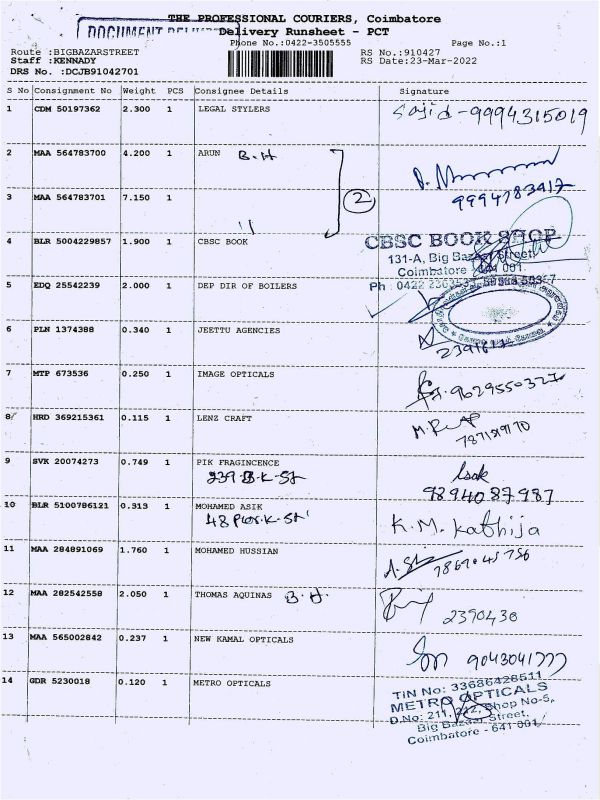 THE PROFESSIONAL COURIERS, Coimbatore
DOCUMENT DELIVERED
Delivery Runsheet - PCT
Phone No.:0422-3505555 Page No.:1
Route :BIGBAZARSTREET RS No.:910427
Staff :KENNADY RS Date:23-Mar-2022
DRS No. :DCJB91042701
S No Consignment No Weight PCS Consignee Details Signature
1 CDM 50197362 2.300 1 LEGAL STYLERS Sajid - 9994315019
2 MAA 564783700 4.200 1 ARUN B.H
2
9994783417
3 MAA 564783701 7.150 1
"
4 BLR 5004229857 1.900 1 CBSC BOOK CBSC BOOK SHOP
131-A, Big Bazaar Street,
Coimbatore - 641 001.
Ph : 0422
5 EDQ 25542239 2.000 1 DEP DIR OF BOILERS
6 PLN 1374388 0.340 1 JEETTU AGENCIES
7 MTP 673536 0.250 1 IMAGE OPTICALS 9629550327
8 HRD 369215361 0.115 1 LENZ CRAFT
9 SVK 20074273 0.749 1 PIK FRAGINCENCE
9894087987
10 BLR 5100786121 0.313 1 MOHAMED ASIK K.M. Kathija
11 MAA 284891069 1.760 1 MOHAMED HUSSIAN
12 MAA 282542558 2.050 1 THOMAS AQUINAS B.H. 2390430
13 MAA 565002842 0.237 1 NEW KAMAL OPTICALS 9043041777
14 GDR 5230018 0.120 1 METRO OPTICALS TIN No: 33686428511
METRO OPTICALS
D.No: 211, 212, Shop No-5,
Big Bazaar Street,
Coimbatore - 641 001.